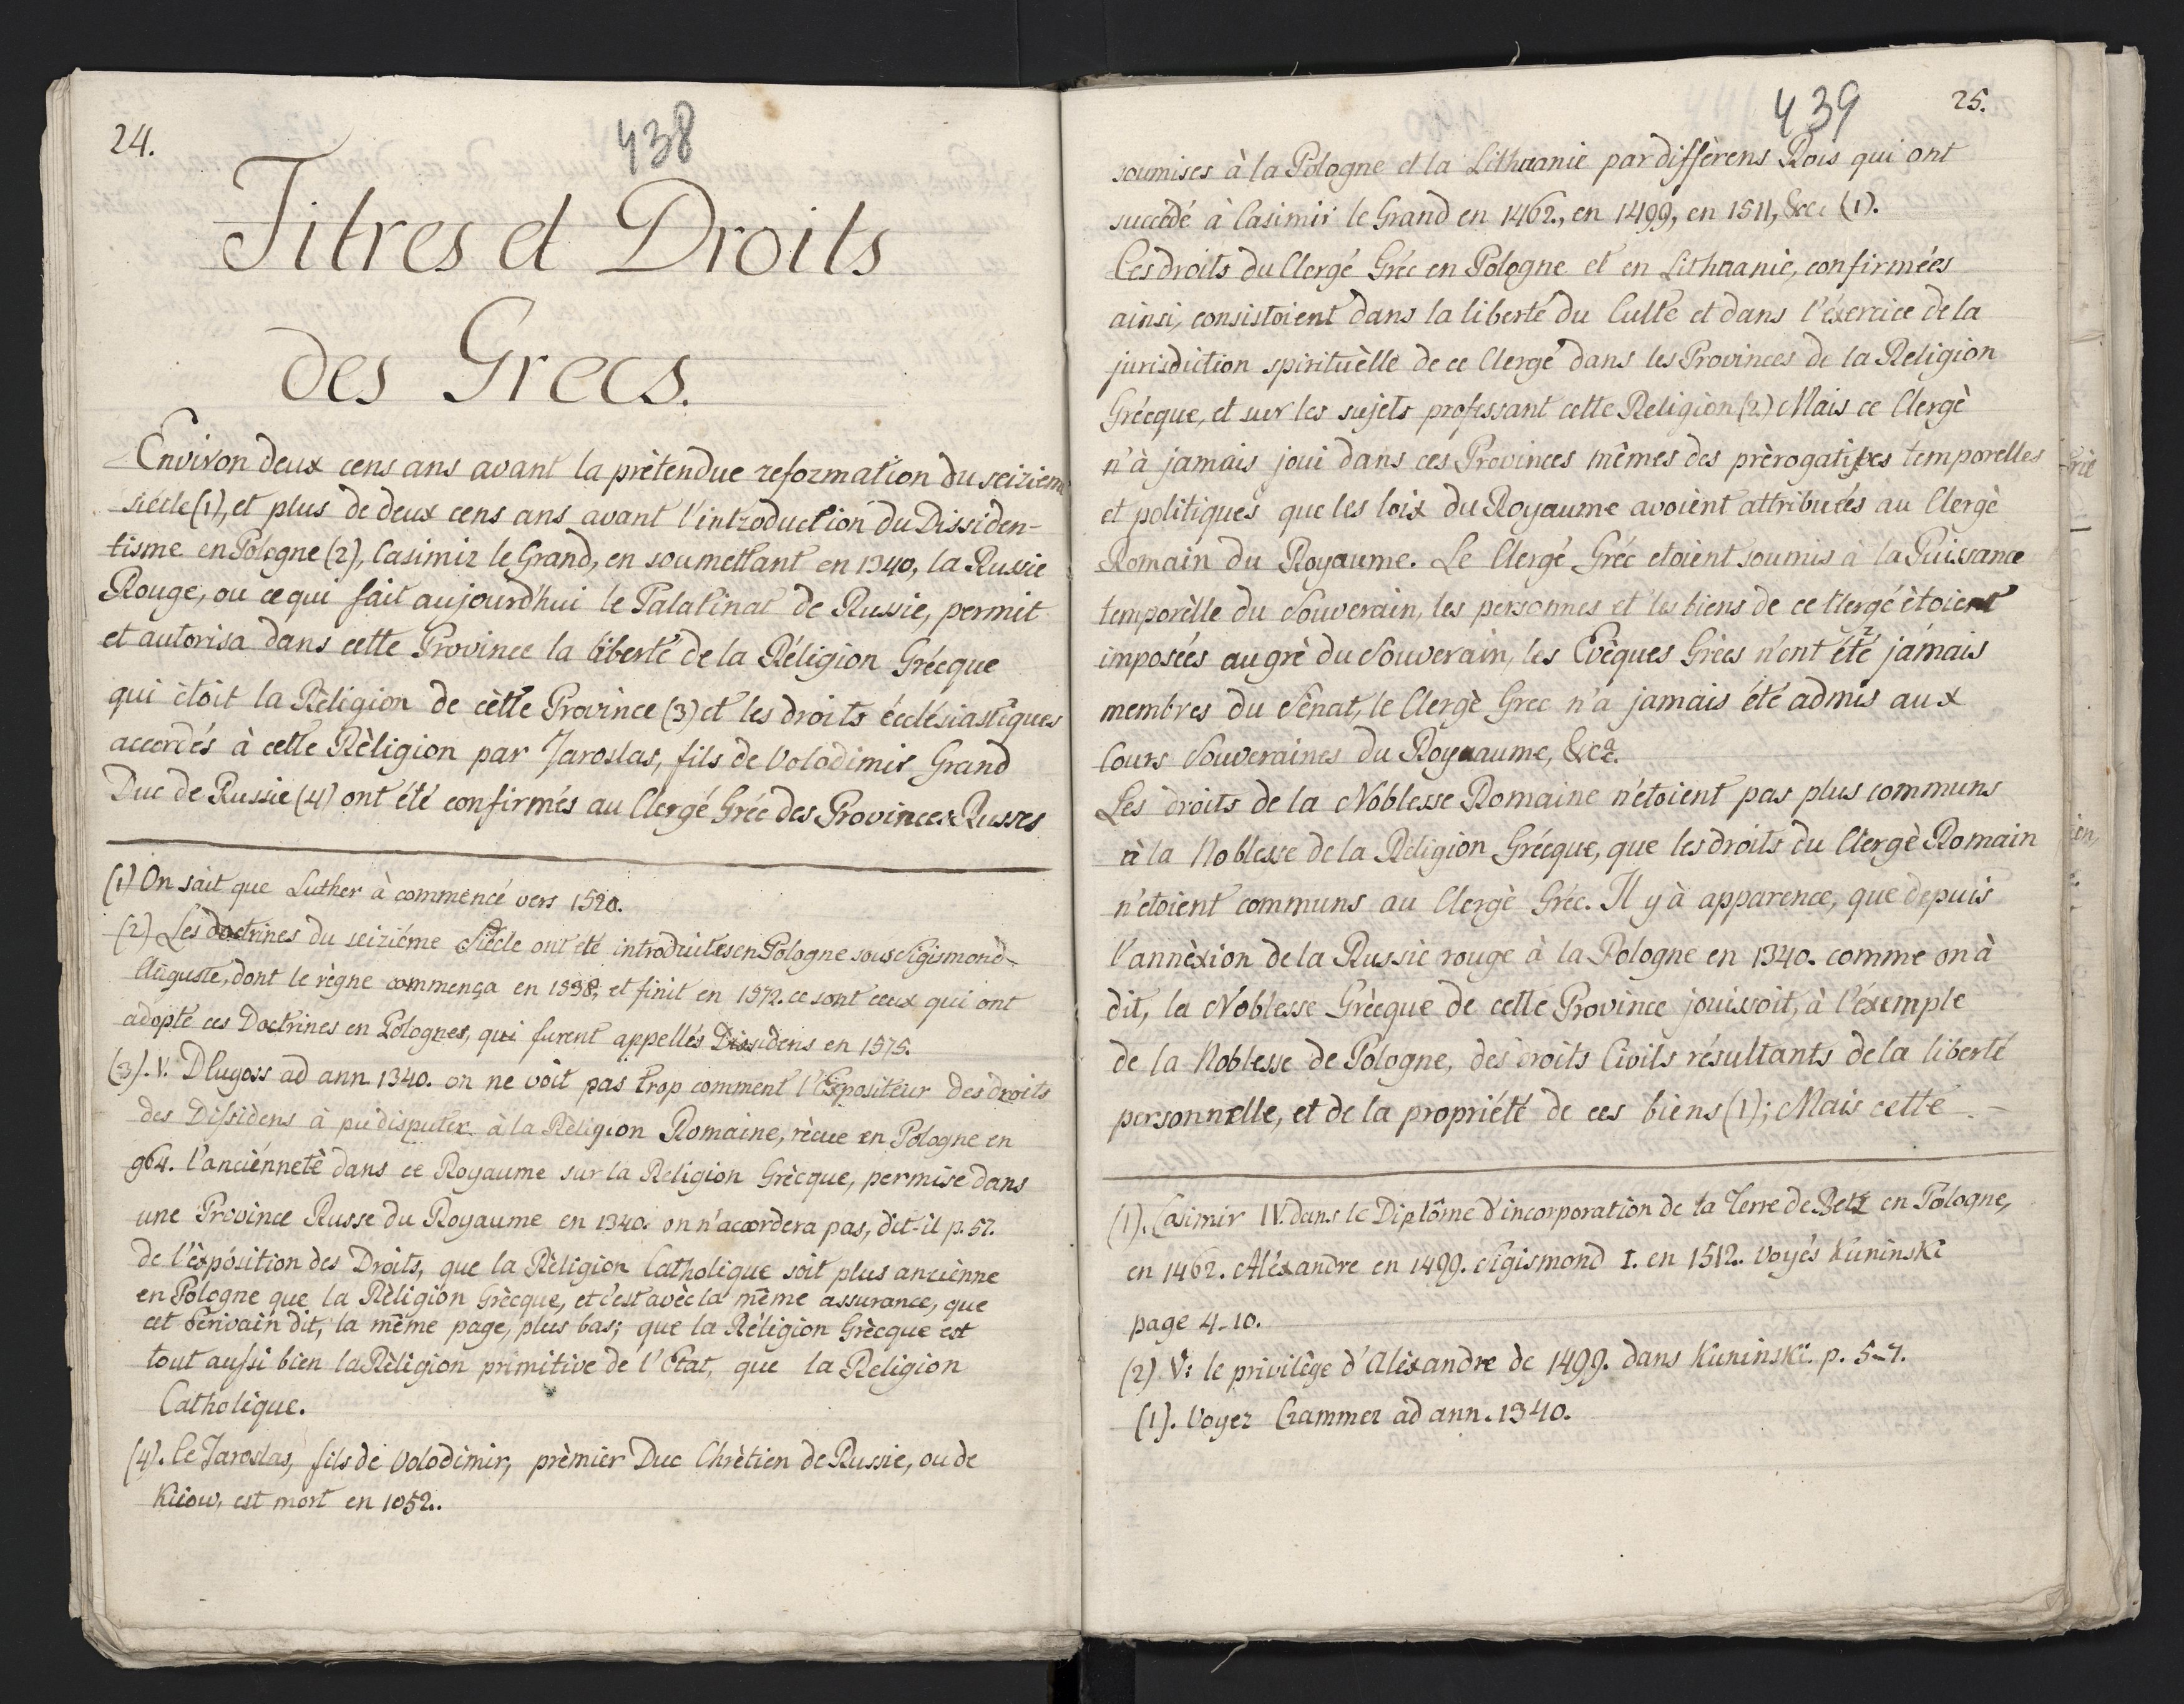 24.
438
Titres et Droits
des Grecs.
Environ deux cens ans avant la prètendue reformation du seiziem
siécle (1), et plus de deux cens ans avant l'introduction du Dissiden-
tisme en Pologne (2), Casimir le Grand, en soumettant en 1340, la Russie
Rouge, ou ce qui fait aujourd'hui le Palatinat de Russie, permit
et autorisa dans cette Province la liberté de la Réligion Grécque
qui ètoit la Rèligion de cètte Province (3) et les droits écclésiastiques
accordés à cette Rèligion par Jaroslas, fils de Volodimir Grand
Duc de Russie (4) ont été confirmés au Clergé Gréc des Provinces Russes
(1) On sait que Luther à commencé vers 1520.
(2) Les doctrines du seiziéme Siècle ont eté introduites en Pologne sous Sigismond-
Auguste, dont le règne commença en 1538, et finit en 1572. ce sont ceux qui ont
adopté ces Doctrines en Polognes, qui furent appellés Dissidens en 1575.
(3). V. Dlugoss ad ann 1340. on ne voit pas trop comment l'Expositeur des droits
des Dissidens à pu disputer à la Rèligion Romaine, rècue en Pologne en
964. l'anciénnetè dans ce Royaume sur la Religion Grècque, permise dans
une Province Russe du Royaume en 1340. on n'accordera pas, dit-il p. 57.
de l'èxpósition des Droits, que la Rèligion Catholique soit plus anciènne
en Pólogne que la Rèligion Grècque, et c'est avèc la même assurance, que
cet Ecrivain dit, la même page, plus bas; que la Réligion Grècque est
tout aussi bien la Rèligion primitive de l'Etat, que la Religion
Catholique.
(4). Ce Jaroslas, fils de Volodimir, prèmier Duc Chrètien de Russie, ou de
Kiiow, est mort en 1052..
439
25.
soumises à la Pologne et la Lithuanie par diffèrens Rois qui ont
succèdé à Casimir le Grand en 1462., en 1499, en 1511, &c: (1).
Ces droits du Clergé Gréc en Pologne et en Lithuanie, confirmées
ainsi, consistoient dans la liberté du Culte et dans l'éxercice de la
jurisdiction spirituèlle de ce Clergé dans les Provinces de la Religion
Grécque, et sur les sujets professant cette Religion (2) Mais ce Clergè
n'à jamais joui dans ces Provinces mêmes des prèrogatives temporelles
et politiques que les loix du Royaume avoient attribuées au Clergè
Romain du Royaume. Le Clergé Gréc etoient soumis à la Puissance
temporèlle du Souverain, les personnes et les biens de ce Clergé ètoient
imposées au grè du Souverain, les Evèques Grecs n'ont été jamais
membres du Sènat, le Clergè Grec n'a jamais été admis aux
Cours Souveraines du Royaume, &ca.
Les droits de la Noblesse Romaine n'étoient pas plus communs
à la Noblesse de la Réligion Grécque, que les droits du Clergè Romain
n'etoient communs au Clergè Gréc. Il y à apparence, que depuis
l'annèxion de la Russie rouge à la Pologne en 1340. comme on à
dit, la Noblesse Grècque de cette Province jouissoit, à l'éxemple
de la Noblesse de Pologne, des droits Civils résultants de la liberté
personnelle, et de la propriété de ces biens (1); Mais cette
(1). Casimir IV. dans le Diplôme d'incorporation de la Terre de Belz en Pologne,
en 1462. Aléxandre en 1499. Sigismond I. en 1512. voyés Kuninski
page 4-10.
(2) V: le privilège d'Aléxandre de 1499. dans Kuninski. p. 5-7.
(1). Voyez Crammer ad ann. 1340.